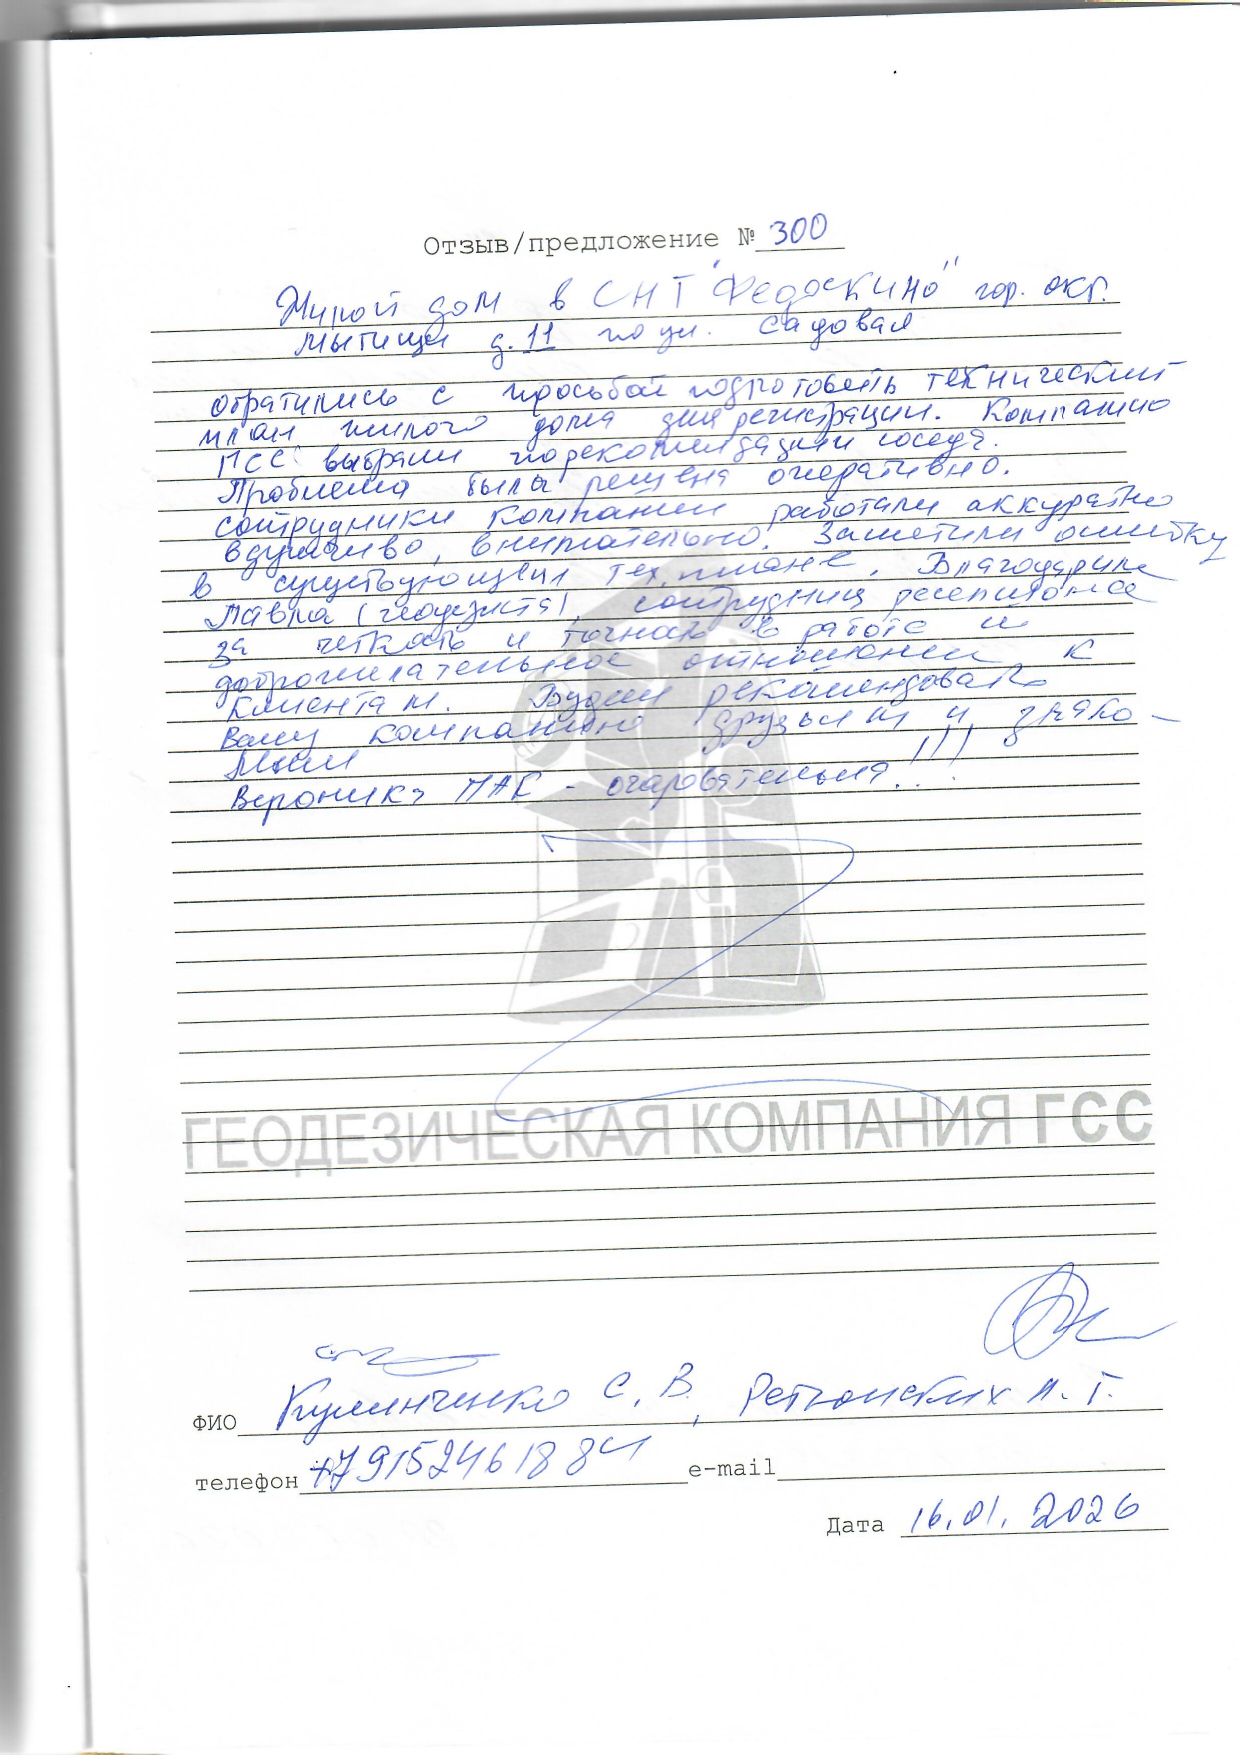 Отзыв/предложение № 300
Жилой дом в СНТ "Федоскино" гор. окр.
Мытищи д. 11 по ул. Садовая
обратились с просьбой подготовить технический
план жилого дома для регистрации. Компанию
ГСС выбрали по рекомендации соседа.
Проблема была решена оперативно.
Сотрудники компании работали аккуратно
вдумчиво, внимательно. Заметили ошибку
в существующем тех. плане. Благодарим
Павла (геодезиста), сотрудниц ресепшонов
за четкость и точность в работе и
доброжелательное отношение к
клиентам. Будем рекомендовать
Вашу компанию друзьям и знако-
мым
Вероника ПАК - очаровательная!!!
ГЕОДЕЗИЧЕСКАЯ КОМПАНИЯ ГСС
ФИО Кулинченко С. В.,
телефон +79152461884 e-mail
Дата 16.01.2026